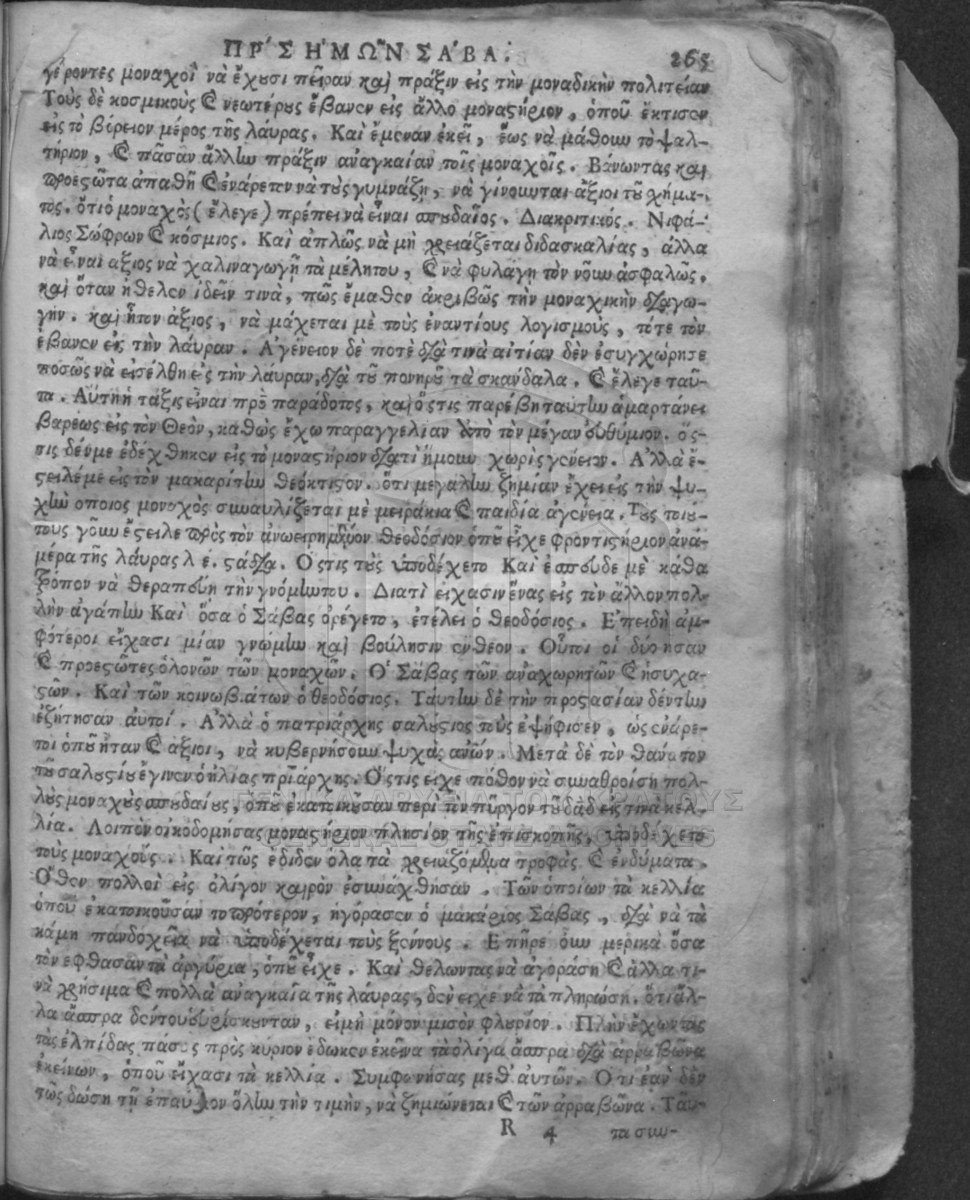 ΠΡ´Σ Η´ΜΩ͂Ν ΣΑ´ΒΑ. 265
γέροντες μοναχοὶ νὰ ἔχουσι πεῖραν καὶ πράξιν εἰς τὴν μοναδικὴν πολιτείαν
Τοὺς δὲ κοσμικοὺς καὶ νεωτέρους ἔβανεν εἰς ἄλλο μοναστήριον, ὁποῦ ἔκτισεν
εἰς τὸ βόρειον μέρος τῆς λαύρας. Καὶ ἔμεναν ἐκεῖ, ἕως νὰ μάθουν τὸ ψαλ-
τήριον, καὶ πᾶσαν ἄλλην πράξιν ἀναγκαίαν τοῖς μοναχοῖς. Βάνωντας καὶ
προεστῶτα ἀπαθῆ καὶ ἐνάρετον νὰ τοὺς γυμνάζῃ, νὰ γίνουνται ἄξιοι τοῦ χήμα-
τος. ὅτι ὁ μοναχὸς (ἔλεγε) πρέπει νὰ εἶναι σπουδαῖος. Διακριτικός. Νιφά-
λιος Σώφρων καὶ κόσμιος. Καὶ ἁπλῶς νὰ μὴ χρειάζεται διδασκαλίας, ἀλλα
νὰ εἶναι αξιος νὰ χαλιναγωγῇ τὰ μέλητου, καὶ νὰ φυλάγῃ τὸν νοῦν ἀσφαλῶς.
καὶ ὅταν ήθελεν ἰδεῖν τινὰ, πῶς ἔμαθεν ἀκριβῶς τὴν μοναχικὴν διαγω-
γήν. καὶ ἦτον ἄξιος, νὰ μάχεται μὲ τοὺς ἐναντίους λογισμοὺς, τότε τὸν
ἔβανεν εἰς τὴν λάυραν. Α᾽γένειον δὲ ποτὲ διὰ τινὰ αἰτίαν δὲν ἐσυγχώρησε
ποσῶς νὰ εἰσέλθη εἰς τὴν λάυραν, διὰ τοῦ πονηροῦ τὰ σκανδαλα. καὶ ἔλεγε ταῦ-
τα. Αὕτη ἡ τάξις εἶναι προπαράδοτος, καὶ ὅστις παρέβη ταυτην ἁμαρτάνει
βαρέως εἰς τὸν Θεόν, καθὼς ἔχω παραγγελίαν ὑπὸ τὸν μέγαν ἐυθύμιον. ὅς-
τις δένμε ἐδέχθηκεν εἰς τὸ μοναστήριον διατὶ ἤμουν χωρὶς γένειον. Αλλὰ ἔ-
στειλέ με εἰς τὸν μακαρίτην θεόκτιστον. ὅτι μεγαλην ζημίαν ἔχει εἰς τὴν ψυ-
χὴν οποιος μοναχὸς συναυλίζεται μὲ μειράκια καὶ παιδία ἀγένεια. Τοὺς τοιού-
τους γοῦν ἔστειλε πρὸς τὸν ἀνωειρημένον Θεοδόσιον ὁποῦ εἶχε φροντιστήριον ἀνά-
μερα τῆς λάυρας λ έ. στάδια. Ο῞στις τοὺς ὑποδέχετο Καὶ ἐσπούδε μὲ κάθα
τρόπον νὰ θεραπεύῃ τὴν γνόμην του. Διατὶ εἴχασιν ἕνας εἰς τὸν ἄλλον πολ-
λὴν ἀγάπην Καὶ ὅσα ὁ Σάβας ὀρέγετο, ἐτέλει ὁ Θεοδόσιος. Ε᾽πειδὴ ἀμ-
φότεροι εἴχασι μίαν γνώμην καὶ βούλησιν ἔνθεον. Οὗτοι οἱ δύο ησαν
καὶ προεστῶτες ὁλονῶν τῶν μοναχῶν. Ο῾ Σάβας τῶν ἀναχωρητῶν καὶ ἡσυχα-
στῶν. Καὶ τῶν κοινωβιατων ὁ θεοδόσιος. Ταύτην δὲ τὴν προστασίαν δέντην
ἐζήτησαν ἀυτοί. Αλλὰ ὁ πατριάρχης σαλούστιος τοὺς ἐψήφισεν, ὡς ἐνάρε-
τοι ὁποῦ ἦταν καὶ ἄξιοι, νὰ κυβερνήσουν ψυχὰς αὐτῶν. Μετὰ δὲ τὸν θάνατον
τοῦ σαλουστίου ἔγινεν ὁ ἠλίας πριάρχης. Ο῞στις εἶχε πόθον νὰ συναθροίσῃ πολ-
λοὺς μοναχοὺς σπουδαίους, ὁποῦ ἐκατοικοῦσαν περὶ τὸν πῦργον τοῦ δαδ εἰς τινὰ κελ-
λία. Λοιπὸν οἰκοδομήσας μοναστήριον πλησίον τῆς ἐπισκοπῆς, ὑποδέχετο
τοὺς μοναχούς. Καὶ τῶς ἔδιδεν ὁλα τὰ χρειαζόμενα τροφὰς καὶ ἐνδύματα.
Ο῞θεν πολλοὶ εἰς ὀλίγον καιρὸν ἐσυνάχθησαν. Τῶν ὁποίων τὰ κελλία
ὁποῦ ἐκατοικοῦσαν το πρότερον, ἠγόρασεν ὁ μακάριος Σάβας, διὰ νὰ τὰ
κάμη πανδοχεῖα νὰ ὑποδέχεται τοὺς ξέννους. Επῆρε οὖν μερικὰ ὅσα
τὸν εφθασαν τὰ ἀργύρια, ὁποῦ εἶχε. Καὶ θέλωντας νὰ ἀγοράσῃ καὶ ἄλλα τι-
νὰ χρήσιμα καὶ πολλὰ ἀναγκαῖα τῆς λάυρας, δὲν εἶχε νὰ τὰ πληρώσῃ. ὅτι ἄλ-
λα ἄσπρα δέντου ἐυρίσκουνταν, εἰμὴ μόνον μισὸν φλουρίον. Πλὴν ἔχωντας
τὰς ἐλπίδας πάσας πρὸς κύριον ἐδωκεν ἐκεῖνα τὰ ὀλίγα ἄσπρα διὰ ἀρραβῶνα
ἐκείνων, ὁποῦ εἴχασι τὰ κελλία. Συμφωνήσας μεθ᾽ ἀυτῶν. Οτι ἐὰν δὲν
τῶς δώσῃ τῇ ἐπαύριον ὅλην τὴν τιμὴν, νὰ ζημιώνεται καὶ τῶν ἀρραβῶνα. Ταῦ-
R 4 τα συν-
ΓΕΝΙΚΑ ΑΡΧΕΙΑ ΤΟΥ ΚΡΑΤΟΥΣ
GENERAL STATE ARCHIVES